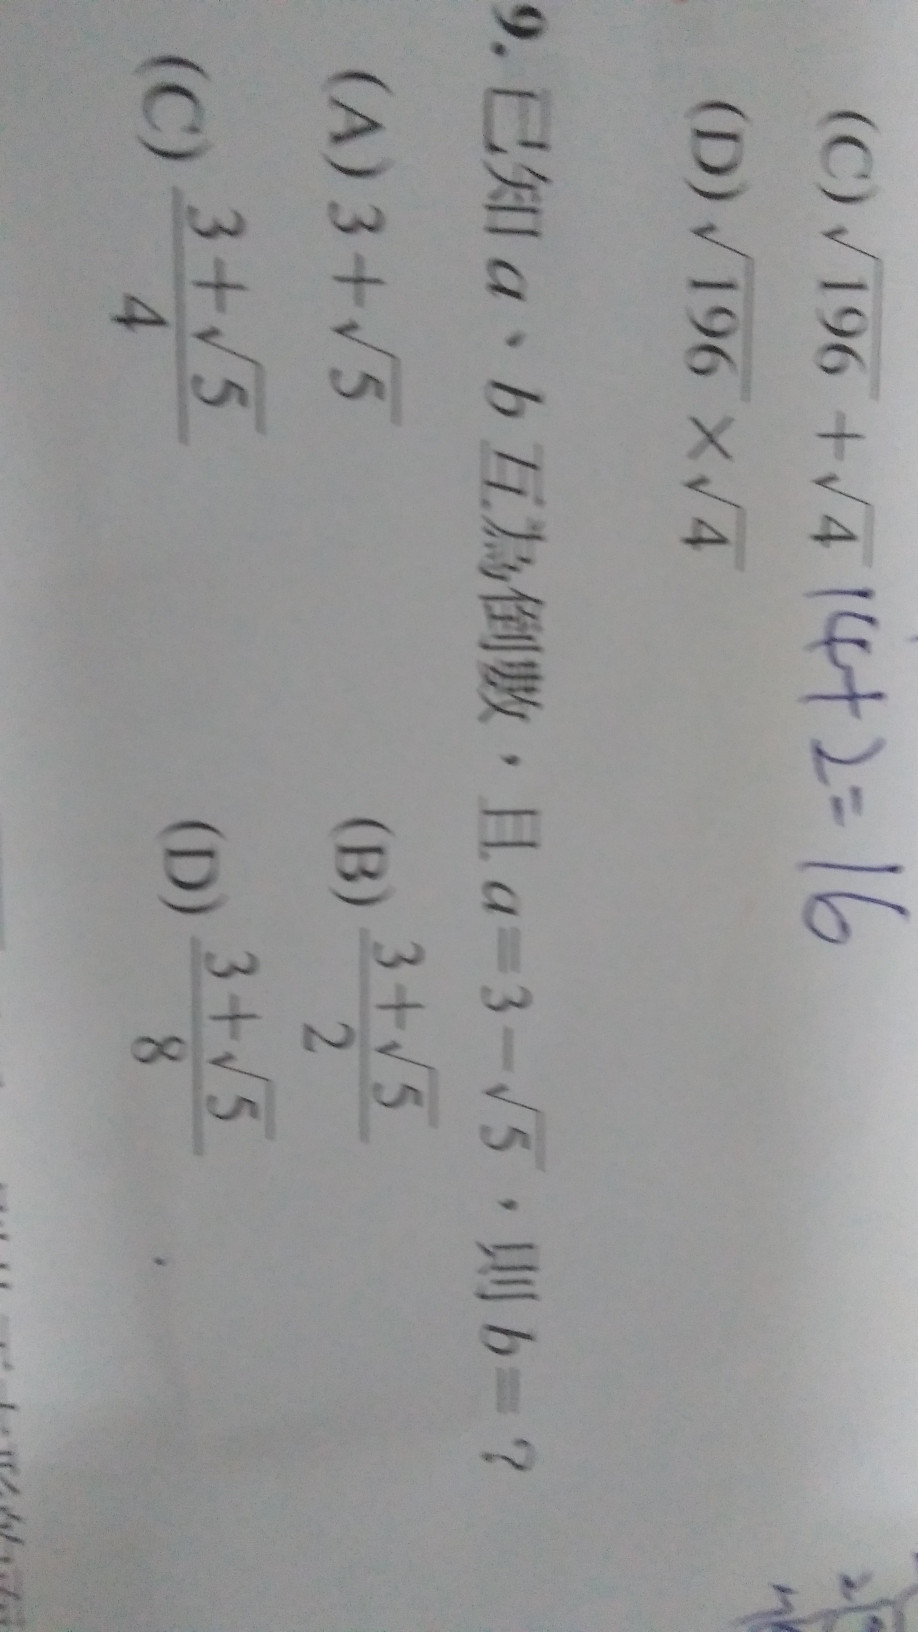 (C) √196 + √4 14+2=16
(D) √196 × √4
9. 已知 a、b 互為倒數，且 a=3-√5，則 b=？
(A) 3+√5 (B) (3+√5)/2
(C) (3+√5)/4 (D) (3+√5)/8